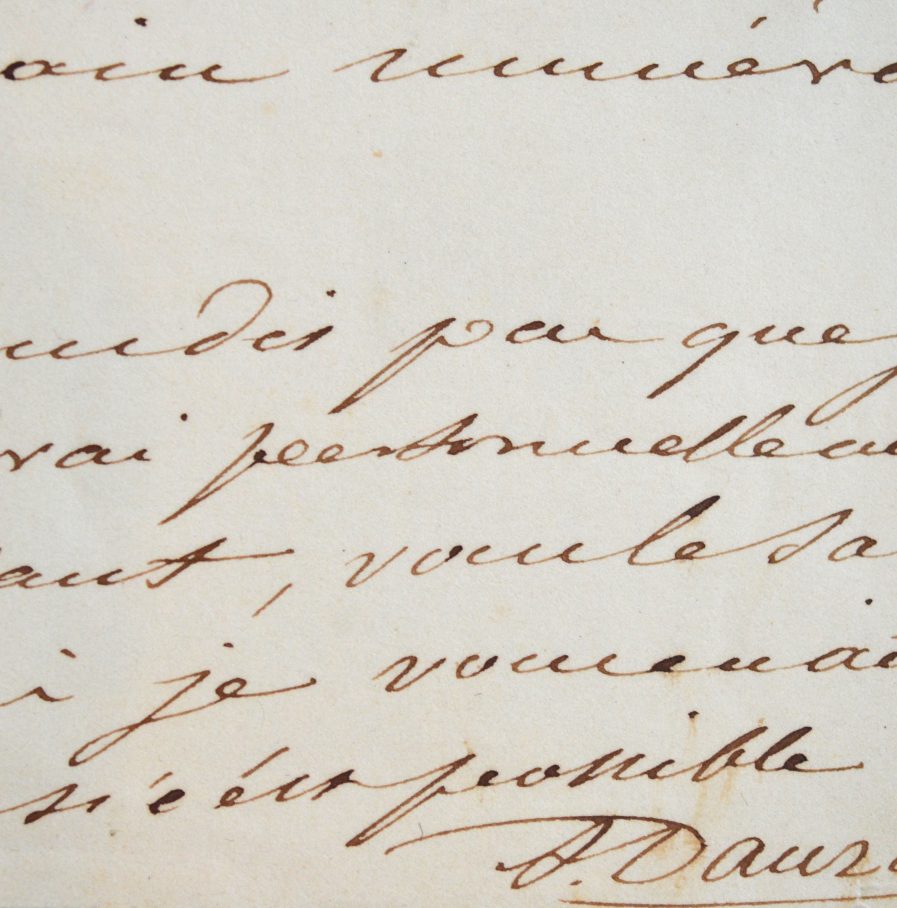 ain numéro
undis pas que j
rai personnelleme
ant, vous le sa
i je vous en ai
s'ie est possible
A. Dauz